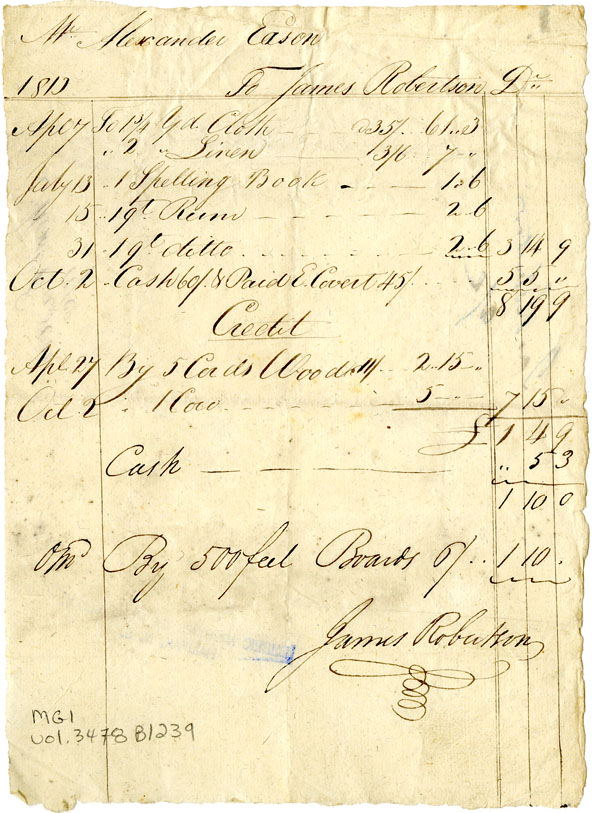 Mr Alexander Eason
1812 To James Robertson Dr
Apl 7 To 1 3/4 Yd. Cloth - - @ 35/ 61..3
" 2 " Linen 13/6 7 - "
July 13 .. 1 Spelling Book - - - - 1..6
15 .. 1 qt Rum - - - - 2..6
31 1 qt ditto - - - - 2..6 3 14 9
Oct. 2 .. Cash 60/. & Paid E. Covert 45/. . . 5 5 "
8 19 9
Credit
Apl 27 By 5 Cords Wood 11/ - - 2..15 "
Oct. 2 . 1 Cow - - - 5 - " 7 15 "
£ 1 4 9
Cash - - - " 5 3
1 10 0
By 500 feet Boards 6/. . . 1 10 .
James Robertson
MG1
vol. 3478 B1239